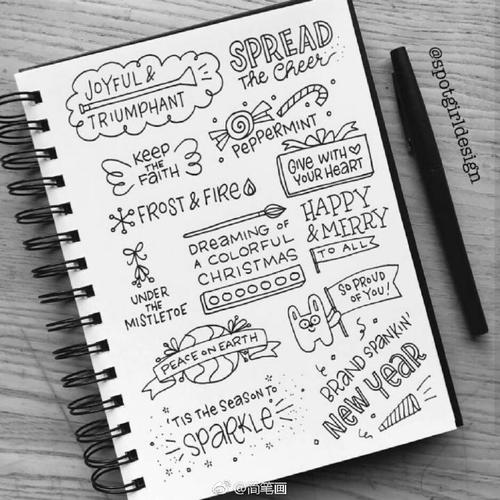 JOYFUL &
TRIUMPHANT
SPREAD
The Cheer
PEPPERMINT
KEEP
THE
FAITH
GIVE WITH
YOUR HEART
FROST & FIRE
HAPPY
& MERRY
TO ALL
DREAMING OF
A COLORFUL
CHRISTMAS
UNDER
THE
MISTLETOE
SO PROUD
OF YOU!
PEACE ON EARTH
BRAND SPANKIN'
NEW YEAR
'TIS THE SEASON TO
SPARKLE
@spotgirldesign
@简笔画